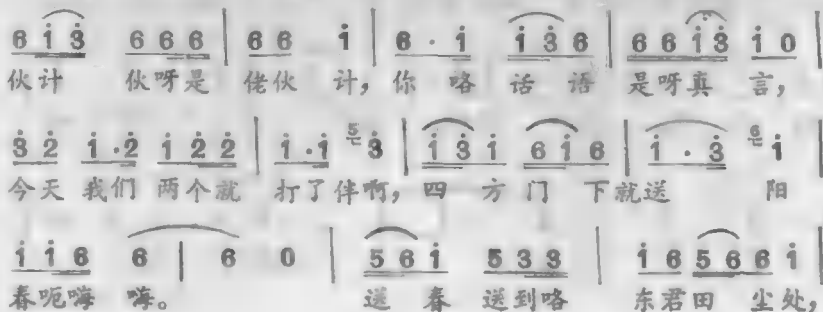 6 i̇ 3̇ 6 6 6 | 6 6 i̇ | 6 · i̇ i̇ 3̇ 6 | 6 6 i̇ 3̇ i̇ 0
伙计 伙呀是 佬伙 计，你 咯 话 语 是呀真 言，
3̇ 2̇ i̇ · 2̇ i̇ 2̇ 2̇ | i̇ · i̇ 5 3̇ | i̇ 3̇ i̇ 6 i̇ 6 | i̇ · 3̇ 6 i̇
今天 我们 两个就 打了伴啊，四 方 门 下就送 阳
i̇ i̇ 6 6 | 6 0 | 5 6 i̇ 5 3 3 | i̇ 6 5 6 6 i̇ |
春呃嗨 嗨。 送 春 送到咯 东君田 尘处，